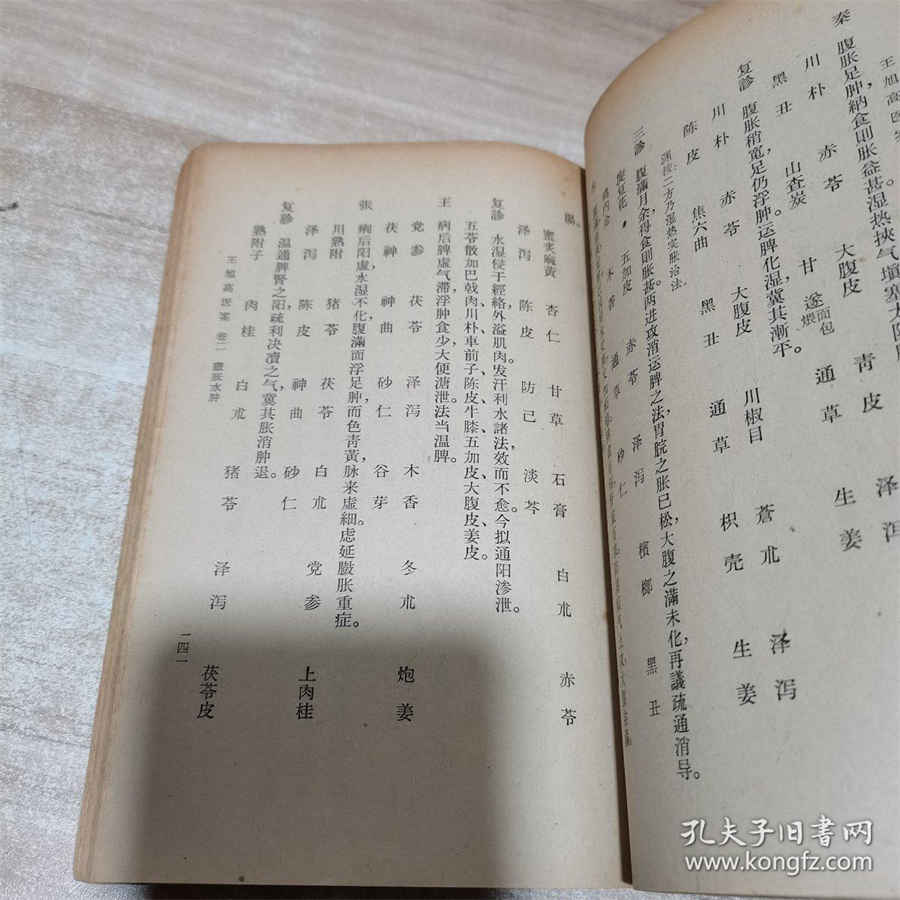 王旭高医案
秦 腹胀足肿,納食則胀益甚,湿热挾气填塞太阴
川朴 赤苓 大腹皮 青皮 泽泻
黑丑 山查炭 甘遂面包煨 通草 生姜
复診 腹胀稍宽,足仍浮肿。运脾化湿,冀其漸平。
川朴 赤苓 大腹皮 川椒目 蒼朮 泽泻
陈皮 焦六曲 黑丑 通草 枳壳 生姜
渊按:二方乃湿热实胀治法。
三診 腹滿月余,得食則胀甚。两进攻消运脾之法,胃脘之胀已松,大腹之滿未化,再議疏通消导。
旋复花 五加皮 赤苓 泽泻 檳榔 黑丑
鸡内金 木香 通草 砂仁
腸。
蜜炙麻黃 杏仁 甘草 石膏 白朮 赤苓
泽泻 陈皮 防已 淡芩
复診 水湿侵于經絡,外溢肌肉。发汗利水諸法,效而不愈。今拟通阳渗泄。
五苓散加巴戟肉、川朴、車前子、陈皮、牛膝、五加皮、大腹皮、姜皮。
王 病后脾虚气滞,浮肿食少,大便溏泄。法当温脾。
党参 茯苓 泽泻 木香 冬朮 炮姜
茯神 神曲 砂仁 谷芽
张 病后阳虚,水湿不化,腹滿而浮足肿,而色靑黃,脉来虚細。虑延臌胀重症。
川熟附 猪苓 茯苓 白朮 党参 上肉桂
泽泻 陈皮 神曲 砂仁
复診 温通脾腎之阳,疏利决瀆之气,冀其胀消肿退。
熟附子 肉桂 白朮 猪苓 泽泻 茯苓皮
王旭高医案 卷二 臌胀水肿
一四一
孔夫子旧书网
www.kongfz.com